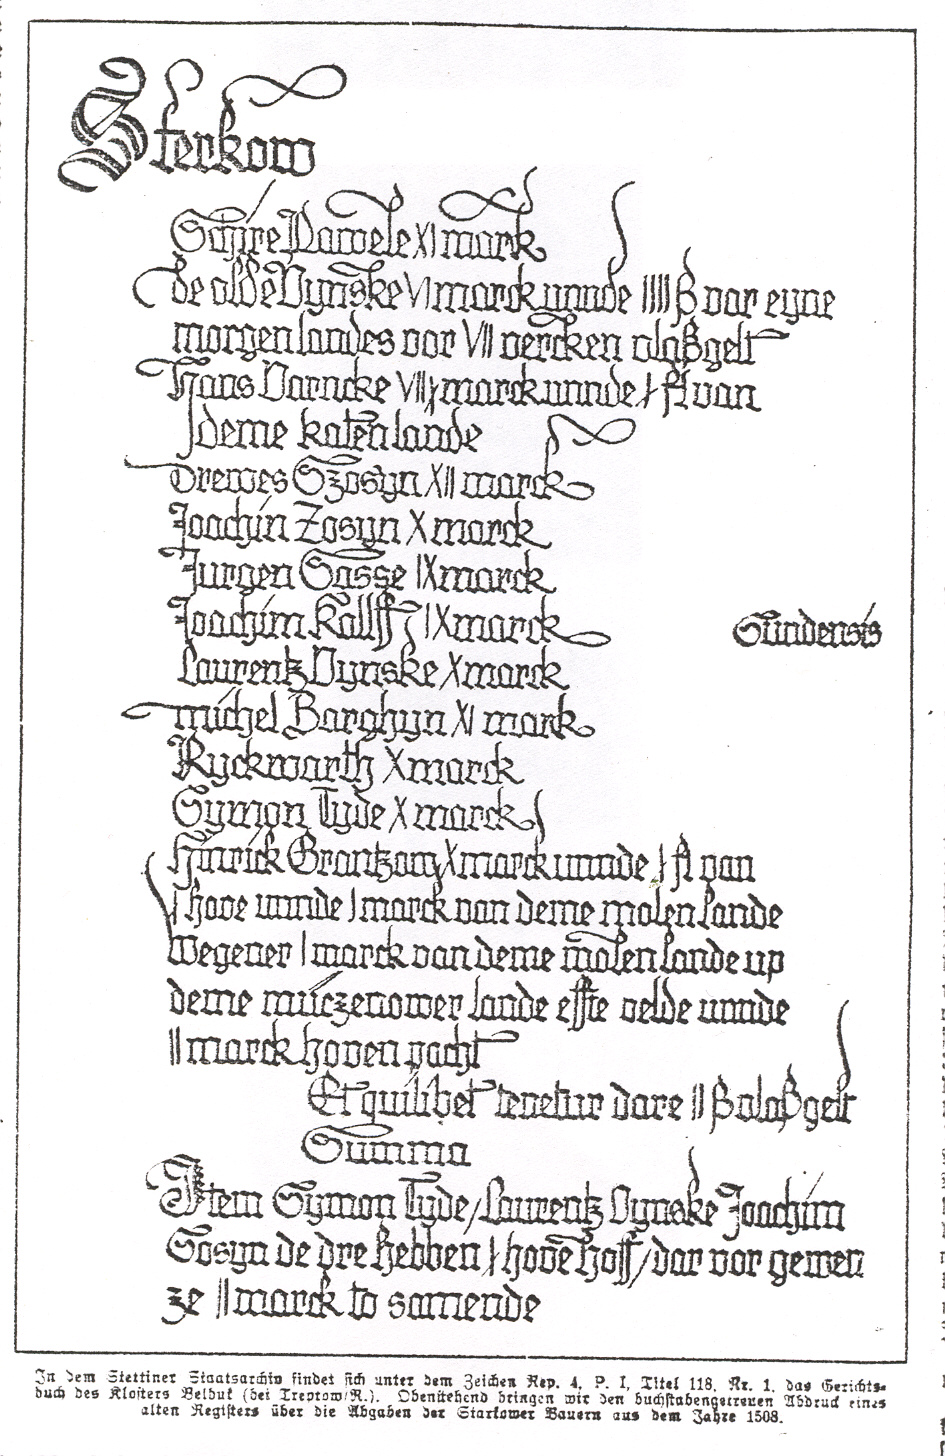 Sterkow
Schire Pawele XI mark
de olde Vynske VI marck unnde IIIII ß vor eyne
morgen landes vor VII verken vlaßgelt
Hans Varncke VIII marck unnde van
deme katen lande
Drewes Szosyn XII marck
Joachin Zosyn X marck
Jurgen Gasse IX marck
Joachim Kallff IX marck
Sundensis
Laurentz Vynske X marck
Michel Barghyn XI mark
Ryckwarth X marck
Symon Tyde X marck
Hinrick Grantzow X marck unnde van
I hove unnde I marck van deme molen lande
Wegener I marck van deme molen lande up
deme muczenower lande effte velde unnde
II marck hoven pacht
Et quilibet tenetur dare II ß vlaßgelt
Summa
Item Symon Tyde / Laurentz Vynske Joachim
Sosyn de dre hebben hove hoff / dar vor geven
ze II marck to samende
In dem Stettiner Staatsarchiv findet sich unter dem Zeichen Rep. 4, P. I, Titel 118, Nr. 1, das Gerichts-
buch des Klosters Belbuk (bei Treptow/R.). Obenstehend bringen wir den buchstabengetreuen Abdruck eines
alten Registers über die Abgaben der Starkower Bauern aus dem Jahre 1508.